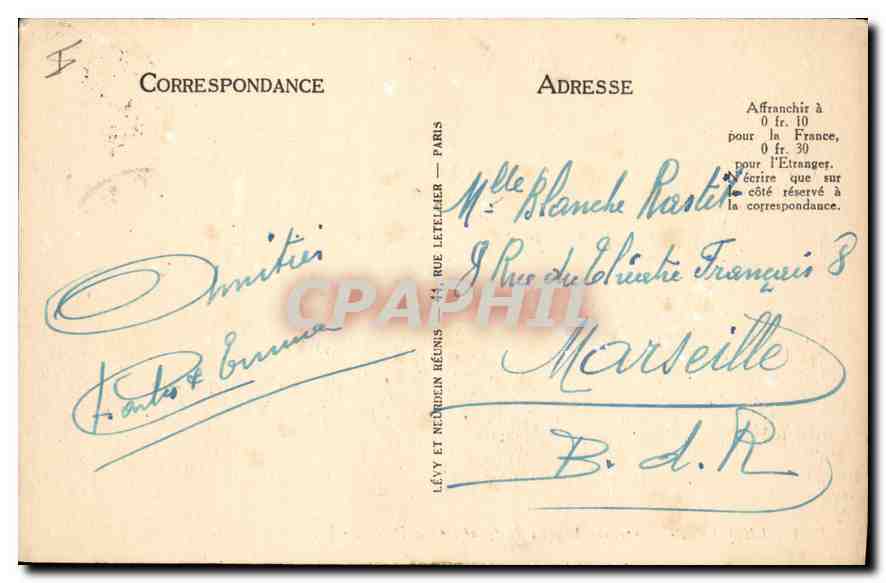 I
CORRESPONDANCE
ADRESSE
Affranchir à
0 fr. 10
pour la France,
0 fr. 30
pour l'Etranger.
N'écrire que sur
le côté réservé à
la correspondance.
Amitiés
& Emma
LÉVY ET NEURDEIN RÉUNIS 44, RUE LETELLIER — PARIS
Mlle Blanche Rastit
8 Rue du Théatre Français 8
Marseille
B. d. R
CPAPHIL